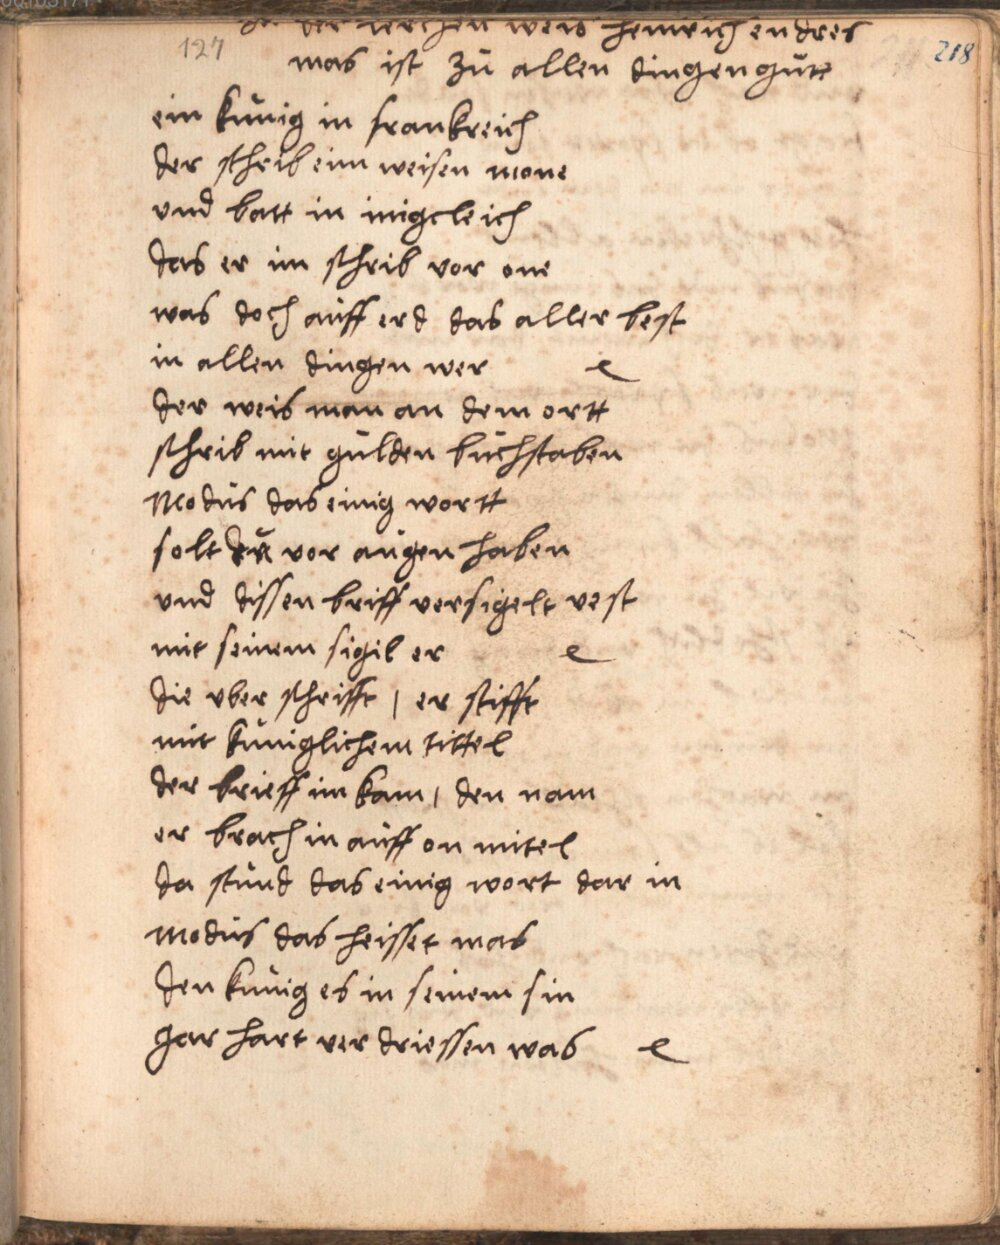 In der lerchen weis heinrich endres
127
218
mas ist zu allen dingen gutt
ein künig in franckreich
der schrib einn weisen mone
und batt in inigcleich
das er im schrib vor one
was doch auff erd das aller best
in allen dingen wer
der weis man an dem ortt
schrib mit gulden buchstaben
Modus das einig wortt
solt du vor augen haben
und dissen briff versigelt vest
mit seinem sigil er
die vber schrifft | er stifft
mit küniglichem tittel
der brieff im kam | den nam
er brach in auff on mitel
da stund das einig wort dar in
Modus das heisset mas
den künig es in seinem sin
gar hart ver driessen was